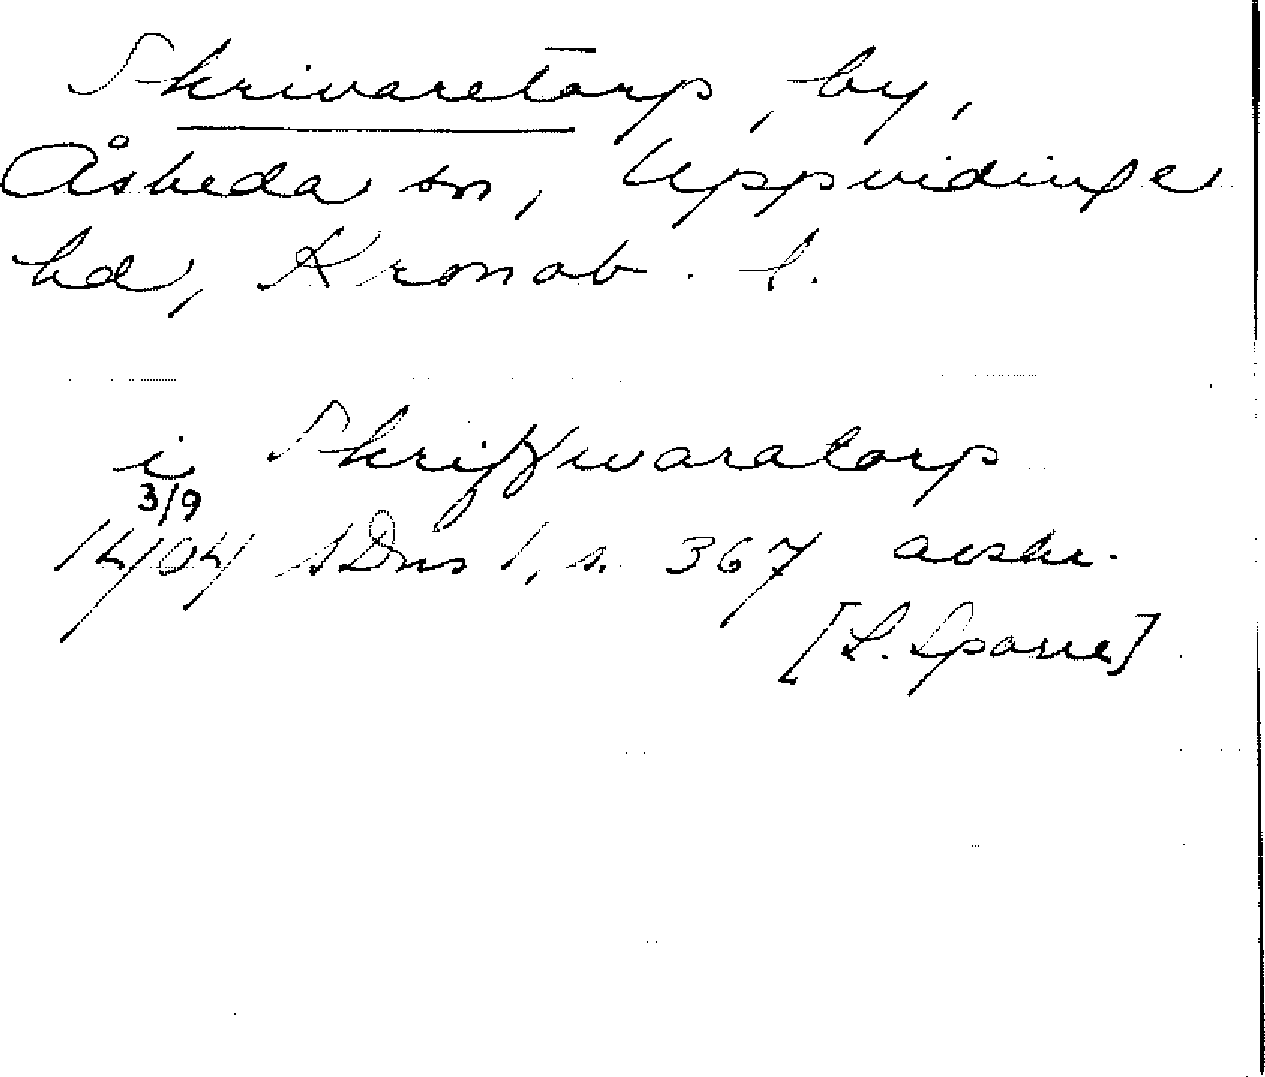 Skrivaretorp, by,
Åsheda sn, Uppvidinge
hd, Kronob. l.
i Skriffwaratorp
3/9
1404 SDns 1, s. 367 avskr.
[L. Sparre]